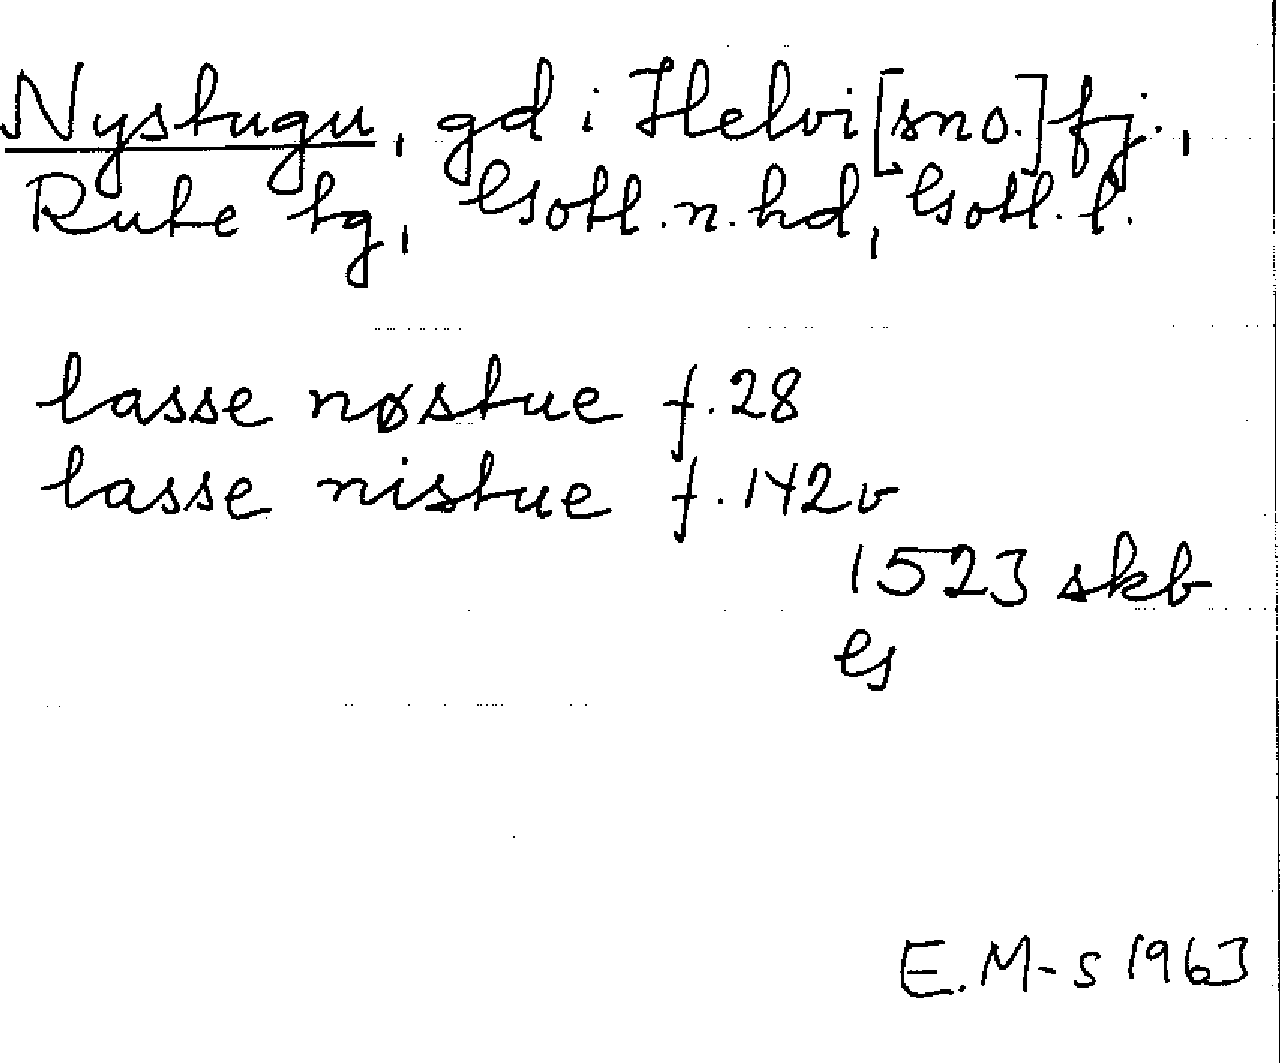 Nystugu, gd i Helvi [sno.] fj.,
Rute tg, Gotl. n. hd, Gotl. l.
lasse nøstue f. 28
lasse nistue f. 142v
1523 skb
G
E. M-s 1963